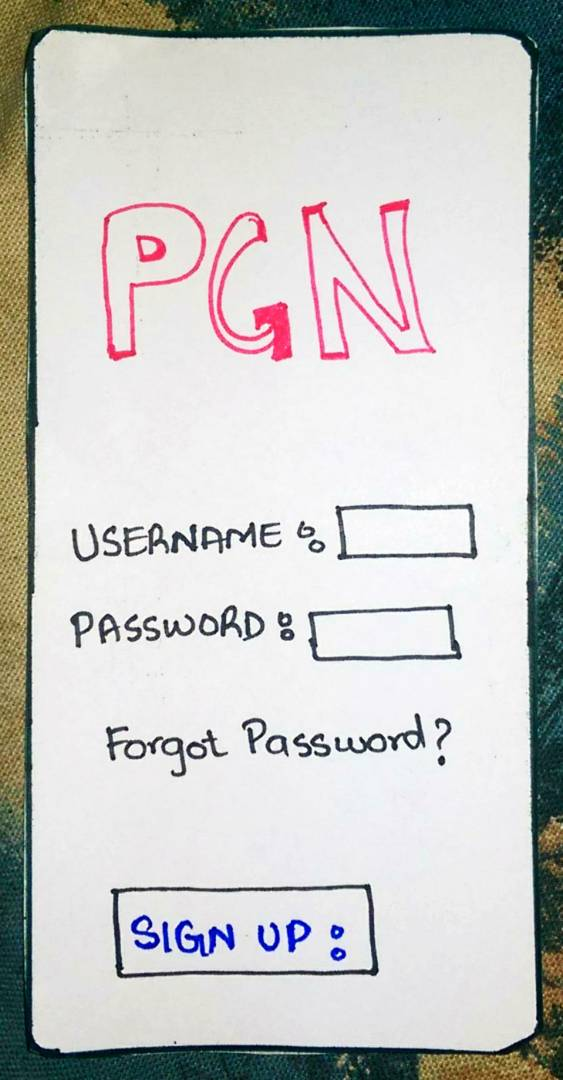 PGN
USERNAME :
PASSWORD :
Forgot Password?
SIGN UP :